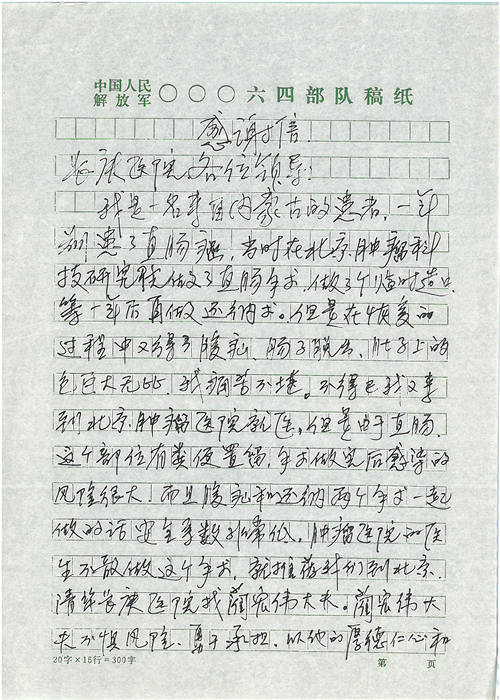 中国人民
解放军 〇〇〇六四部队稿纸
感谢信
长庚医院各位领导:
我是一名来自内蒙古的患者,一年
前患了直肠癌,当时在北京肿瘤科
技研究院做了直肠手术,做了个临时造口
等一年后再做还纳术。但是在恢复的
过程中又得了腹疝、肠子脱出,肚子上的
包巨大无比,我痛苦不堪。不得已我又来
到北京肿瘤医院就医,但是由于直肠
这个部位有粪便置留,手术做完后感染的
风险很大!而且腹疝和还纳两个手术一起
做的话安全系数非常低,肿瘤医院的医
生不敢做这个手术,就推荐我们到北京
清华长庚医院找蔺宏伟大夫。蔺宏伟大
夫不惧风险、勇于承担,以他的厚德仁心和
20字×15行=300字 第 页